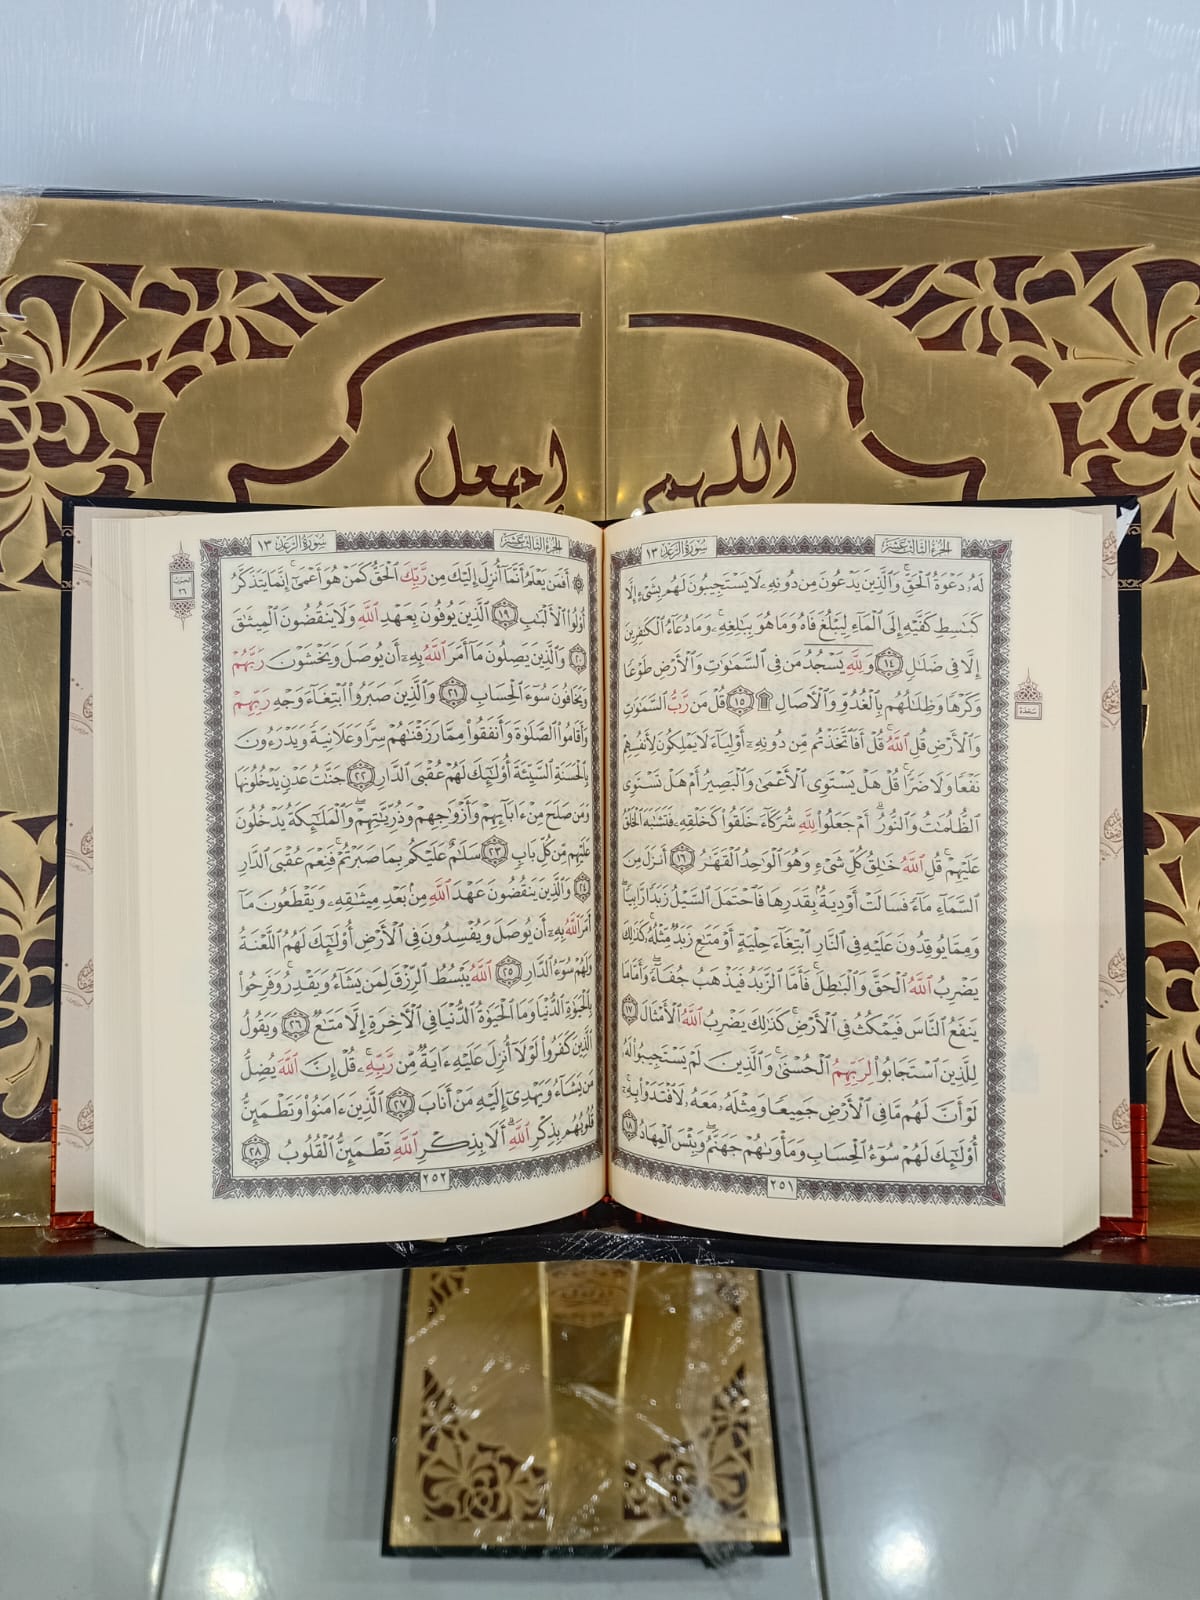 اللهم اجعل
سورة الرعد ١٣ الجزء الثالث عشر
لَهُۥ دَعْوَةُ ٱلْحَقِّ ۖ وَٱلَّذِينَ يَدْعُونَ مِن دُونِهِۦ لَا يَسْتَجِيبُونَ لَهُم بِشَىْءٍ إِلَّا
كَبَـٰسِطِ كَفَّيْهِ إِلَى ٱلْمَآءِ لِيَبْلُغَ فَاهُ وَمَا هُوَ بِبَـٰلِغِهِۦ ۚ وَمَا دُعَآءُ ٱلْكَـٰفِرِينَ
إِلَّا فِى ضَلَـٰلٍ ١٤ وَلِلَّهِ يَسْجُدُ مَن فِى ٱلسَّمَـٰوَٰتِ وَٱلْأَرْضِ طَوْعًا
وَكَرْهًا وَظِلَـٰلُهُم بِٱلْغُدُوِّ وَٱلْـَٔاصَالِ ۩ ١٥ قُلْ مَن رَّبُّ ٱلسَّمَـٰوَٰتِ
وَٱلْأَرْضِ قُلِ ٱللَّهُ ۚ قُلْ أَفَٱتَّخَذْتُم مِّن دُونِهِۦٓ أَوْلِيَآءَ لَا يَمْلِكُونَ لِأَنفُسِهِمْ
نَفْعًا وَلَا ضَرًّا ۚ قُلْ هَلْ يَسْتَوِى ٱلْأَعْمَىٰ وَٱلْبَصِيرُ أَمْ هَلْ تَسْتَوِى
ٱلظُّلُمَـٰتُ وَٱلنُّورُ ۗ أَمْ جَعَلُوا۟ لِلَّهِ شُرَكَآءَ خَلَقُوا۟ كَخَلْقِهِۦ فَتَشَـٰبَهَ ٱلْخَلْقُ
عَلَيْهِمْ ۚ قُلِ ٱللَّهُ خَـٰلِقُ كُلِّ شَىْءٍ وَهُوَ ٱلْوَٰحِدُ ٱلْقَهَّـٰرُ ١٦ أَنزَلَ مِنَ
ٱلسَّمَآءِ مَآءً فَسَالَتْ أَوْدِيَةٌۢ بِقَدَرِهَا فَٱحْتَمَلَ ٱلسَّيْلُ زَبَدًا رَّابِيًا ۚ
وَمِمَّا يُوقِدُونَ عَلَيْهِ فِى ٱلنَّارِ ٱبْتِغَآءَ حِلْيَةٍ أَوْ مَتَـٰعٍ زَبَدٌ مِّثْلُهُۥ ۚ كَذَٰلِكَ
يَضْرِبُ ٱللَّهُ ٱلْحَقَّ وَٱلْبَـٰطِلَ ۚ فَأَمَّا ٱلزَّبَدُ فَيَذْهَبُ جُفَآءً ۖ وَأَمَّا مَا
يَنفَعُ ٱلنَّاسَ فَيَمْكُثُ فِى ٱلْأَرْضِ ۚ كَذَٰلِكَ يَضْرِبُ ٱللَّهُ ٱلْأَمْثَالَ ١٧
لِلَّذِينَ ٱسْتَجَابُوا۟ لِرَبِّهِمُ ٱلْحُسْنَىٰ ۚ وَٱلَّذِينَ لَمْ يَسْتَجِيبُوا۟ لَهُۥ
لَوْ أَنَّ لَهُم مَّا فِى ٱلْأَرْضِ جَمِيعًا وَمِثْلَهُۥ مَعَهُۥ لَٱفْتَدَوْا۟ بِهِۦٓ ۚ
أُو۟لَـٰٓئِكَ لَهُمْ سُوٓءُ ٱلْحِسَابِ وَمَأْوَىٰهُمْ جَهَنَّمُ ۖ وَبِئْسَ ٱلْمِهَادُ ١٨
٢٥١
سجدة
سورة الرعد ١٣ الجزء الثالث عشر
۞ أَفَمَن يَعْلَمُ أَنَّمَآ أُنزِلَ إِلَيْكَ مِن رَّبِّكَ ٱلْحَقُّ كَمَنْ هُوَ أَعْمَىٰٓ ۚ إِنَّمَا يَتَذَكَّرُ
أُو۟لُوا۟ ٱلْأَلْبَـٰبِ ١٩ ٱلَّذِينَ يُوفُونَ بِعَهْدِ ٱللَّهِ وَلَا يَنقُضُونَ ٱلْمِيثَـٰقَ
٢٠ وَٱلَّذِينَ يَصِلُونَ مَآ أَمَرَ ٱللَّهُ بِهِۦٓ أَن يُوصَلَ وَيَخْشَوْنَ رَبَّهُمْ
وَيَخَافُونَ سُوٓءَ ٱلْحِسَابِ ٢١ وَٱلَّذِينَ صَبَرُوا۟ ٱبْتِغَآءَ وَجْهِ رَبِّهِمْ
وَأَقَامُوا۟ ٱلصَّلَوٰةَ وَأَنفَقُوا۟ مِمَّا رَزَقْنَـٰهُمْ سِرًّا وَعَلَانِيَةً وَيَدْرَءُونَ
بِٱلْحَسَنَةِ ٱلسَّيِّئَةَ أُو۟لَـٰٓئِكَ لَهُمْ عُقْبَى ٱلدَّارِ ٢٢ جَنَّـٰتُ عَدْنٍ يَدْخُلُونَهَا
وَمَن صَلَحَ مِنْ ءَابَآئِهِمْ وَأَزْوَٰجِهِمْ وَذُرِّيَّـٰتِهِمْ ۖ وَٱلْمَلَـٰٓئِكَةُ يَدْخُلُونَ
عَلَيْهِم مِّن كُلِّ بَابٍ ٢٣ سَلَـٰمٌ عَلَيْكُم بِمَا صَبَرْتُمْ ۚ فَنِعْمَ عُقْبَى ٱلدَّارِ
٢٤ وَٱلَّذِينَ يَنقُضُونَ عَهْدَ ٱللَّهِ مِنۢ بَعْدِ مِيثَـٰقِهِۦ وَيَقْطَعُونَ مَآ
أَمَرَ ٱللَّهُ بِهِۦٓ أَن يُوصَلَ وَيُفْسِدُونَ فِى ٱلْأَرْضِ ۙ أُو۟لَـٰٓئِكَ لَهُمُ ٱللَّعْنَةُ
وَلَهُمْ سُوٓءُ ٱلدَّارِ ٢٥ ٱللَّهُ يَبْسُطُ ٱلرِّزْقَ لِمَن يَشَآءُ وَيَقْدِرُ ۚ وَفَرِحُوا۟
بِٱلْحَيَوٰةِ ٱلدُّنْيَا وَمَا ٱلْحَيَوٰةُ ٱلدُّنْيَا فِى ٱلْـَٔاخِرَةِ إِلَّا مَتَـٰعٌ ٢٦ وَيَقُولُ
ٱلَّذِينَ كَفَرُوا۟ لَوْلَآ أُنزِلَ عَلَيْهِ ءَايَةٌ مِّن رَّبِّهِۦ ۗ قُلْ إِنَّ ٱللَّهَ يُضِلُّ
مَن يَشَآءُ وَيَهْدِىٓ إِلَيْهِ مَنْ أَنَابَ ٢٧ ٱلَّذِينَ ءَامَنُوا۟ وَتَطْمَئِنُّ
قُلُوبُهُم بِذِكْرِ ٱللَّهِ ۗ أَلَا بِذِكْرِ ٱللَّهِ تَطْمَئِنُّ ٱلْقُلُوبُ ٢٨
٢٥٢
الحزب
٢٦